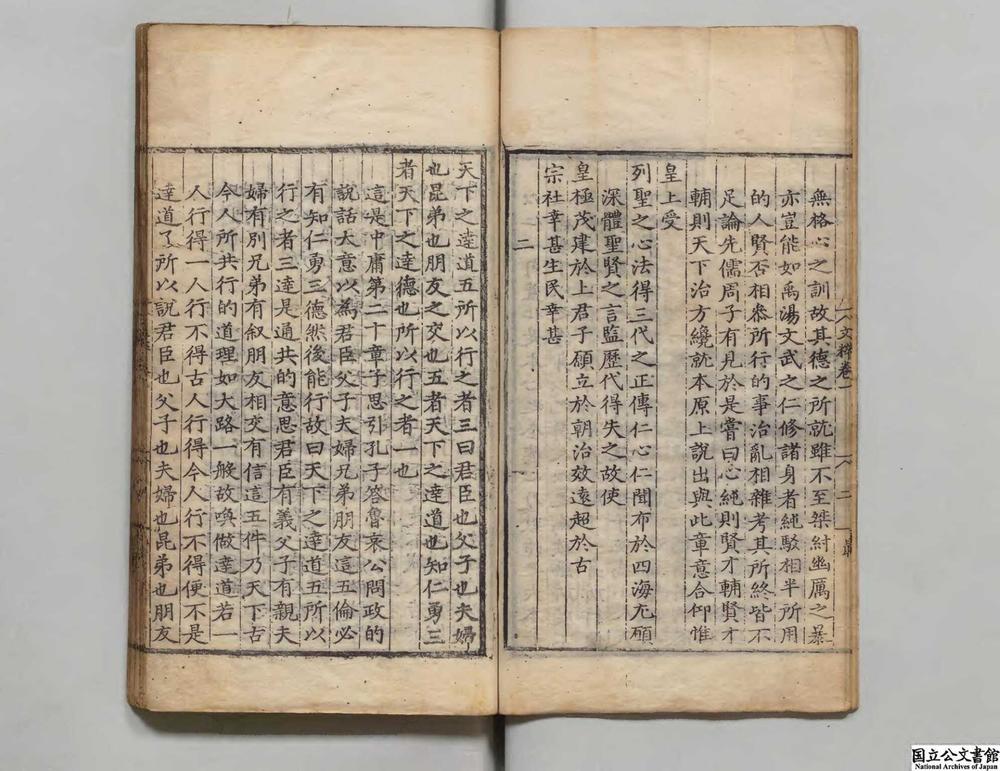 無格心之訓故其德之所就雖不至桀紂幽厲之暴
亦豈能如禹湯文武之仁修諸身者純駁相半所用
的人賢否相叅所行的事治亂相雜考其所終皆不
足論先儒周子有見於是嘗曰心純則賢才輔賢才
輔則天下治方纔就本原上說出與此章意合仰惟
皇上受
列聖之心法得三代之正傳仁心仁聞布於四海尤願
深體聖賢之言監歷代得失之故使
皇極茂建於上君子願立於朝治效遠超於古
宗社幸甚生民幸甚
二
天下之達道五所以行之者三曰君臣也父子也夫婦
也昆弟也朋友之交也五者天下之達道也知仁勇三
者天下之達德也所以行之者一也
這是中庸第二十章子思引孔子答魯哀公問政的
說話大意以為君臣父子夫婦兄弟朋友這五倫必
有知仁勇三德然後能行故曰天下之達道五所以
行之者三達是通共的意思君臣有義父子有親夫
婦有別兄弟有叙朋友相交有信這五件乃天下古
今人所共行的道理如大路一般故喚做達道若一
人行得一人行不得古人行得今人行不得便不是
達道了所以說君臣也父子也夫婦也昆弟也朋友
国立公文書館
National Archives of Japan